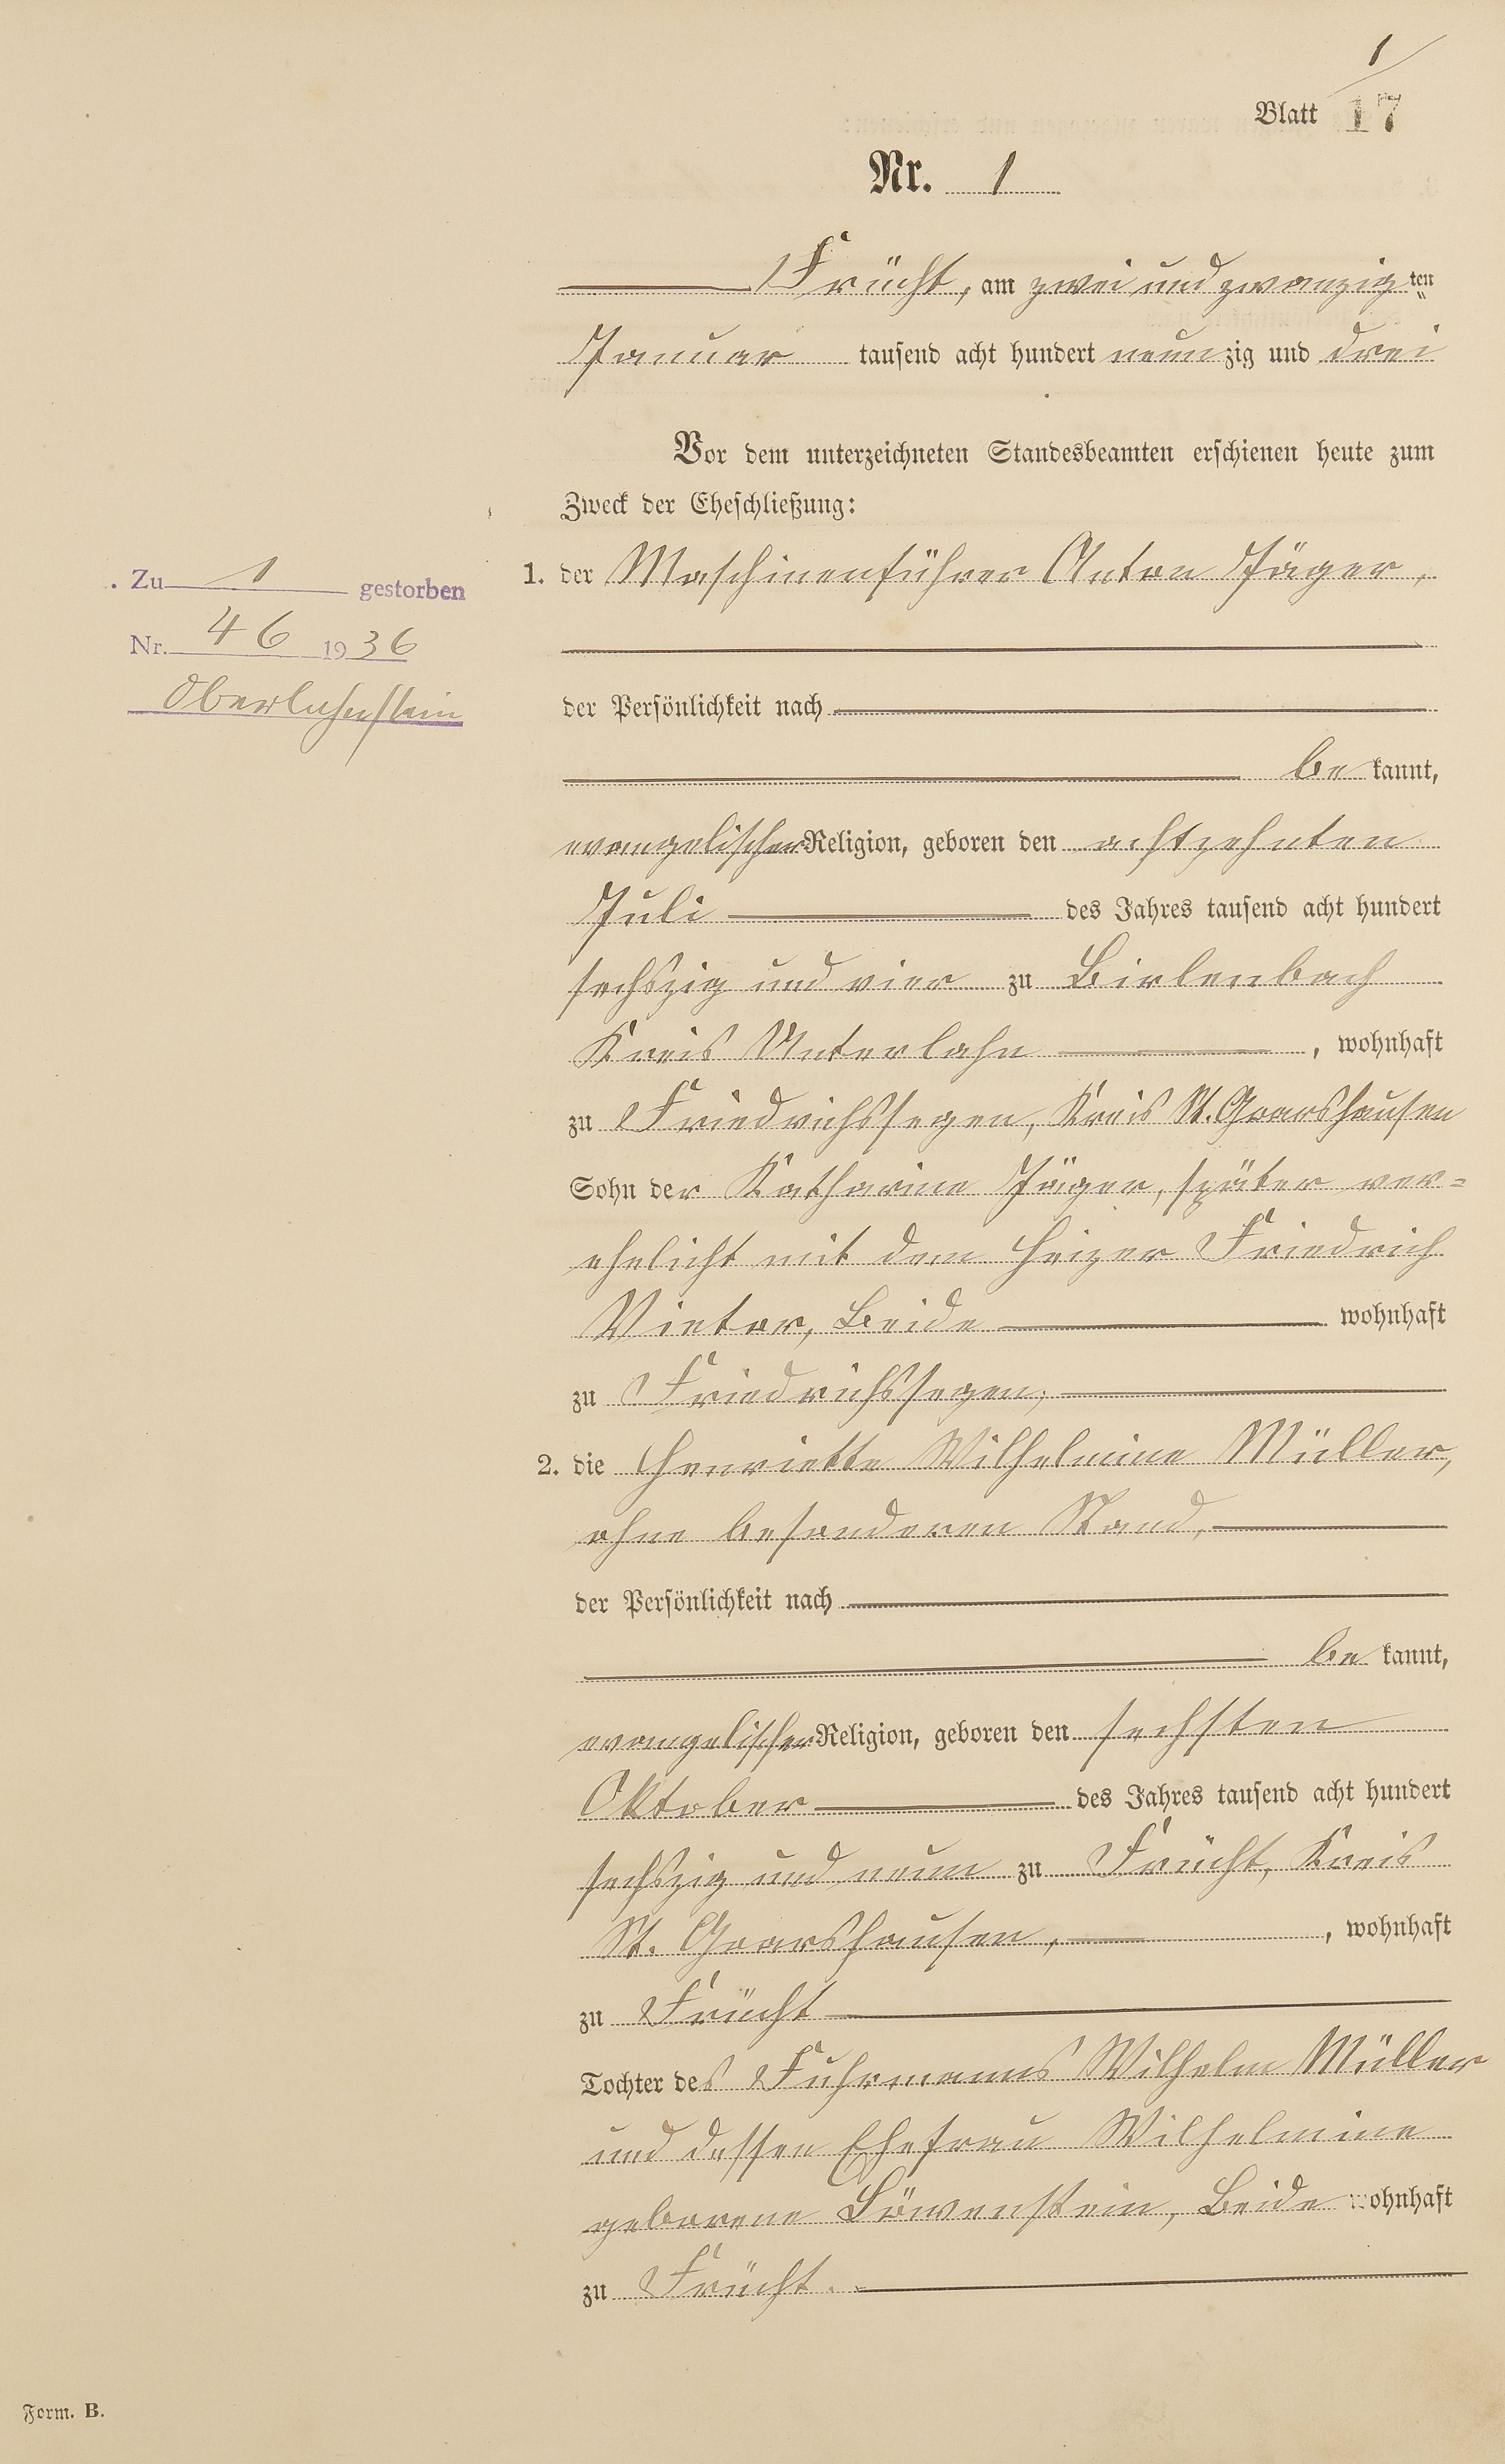 1
Blatt 17
Nr. 1
Frücht, am zwei und zwanzig ten
Januar tausend acht hundert neunzig und drei
Vor dem unterzeichneten Standesbeamten erschienen heute zum
Zweck der Eheschließung:
1. der Maschinenführer Anton Jäger,
der Persönlichkeit nach
be kannt,
evangelischer Religion, geboren den achtzehnten
Juli des Jahres tausend acht hundert
sechszig und vier zu Birlenbach
Kreis Unterlahn, wohnhaft
zu Friedrichssegen, Kreis St. Goarshausen
Sohn der Katharine Jäger, später ver=
ehelicht mit dem Heizer Friedrich
Vietor, Beide wohnhaft
zu Friedrichssegen,
2. die Henriette Wilhelmine Müller,
ohne besonderen Stand,
der Persönlichkeit nach
be kannt,
evangelischer Religion, geboren den sechsten
Oktober des Jahres tausend acht hundert
sechszig und neun zu Frücht, Kreis
St. Goarshausen, , wohnhaft
zu Frücht
Tochter des Fuhrmanns Wilhelm Müller
und dessen Ehefrau Wilhelmine
geborene Löwenstein, Beide wohnhaft
zu Frücht.
Zu 1 gestorben
Nr. 46 1936
Oberlahnstein
Form. B.